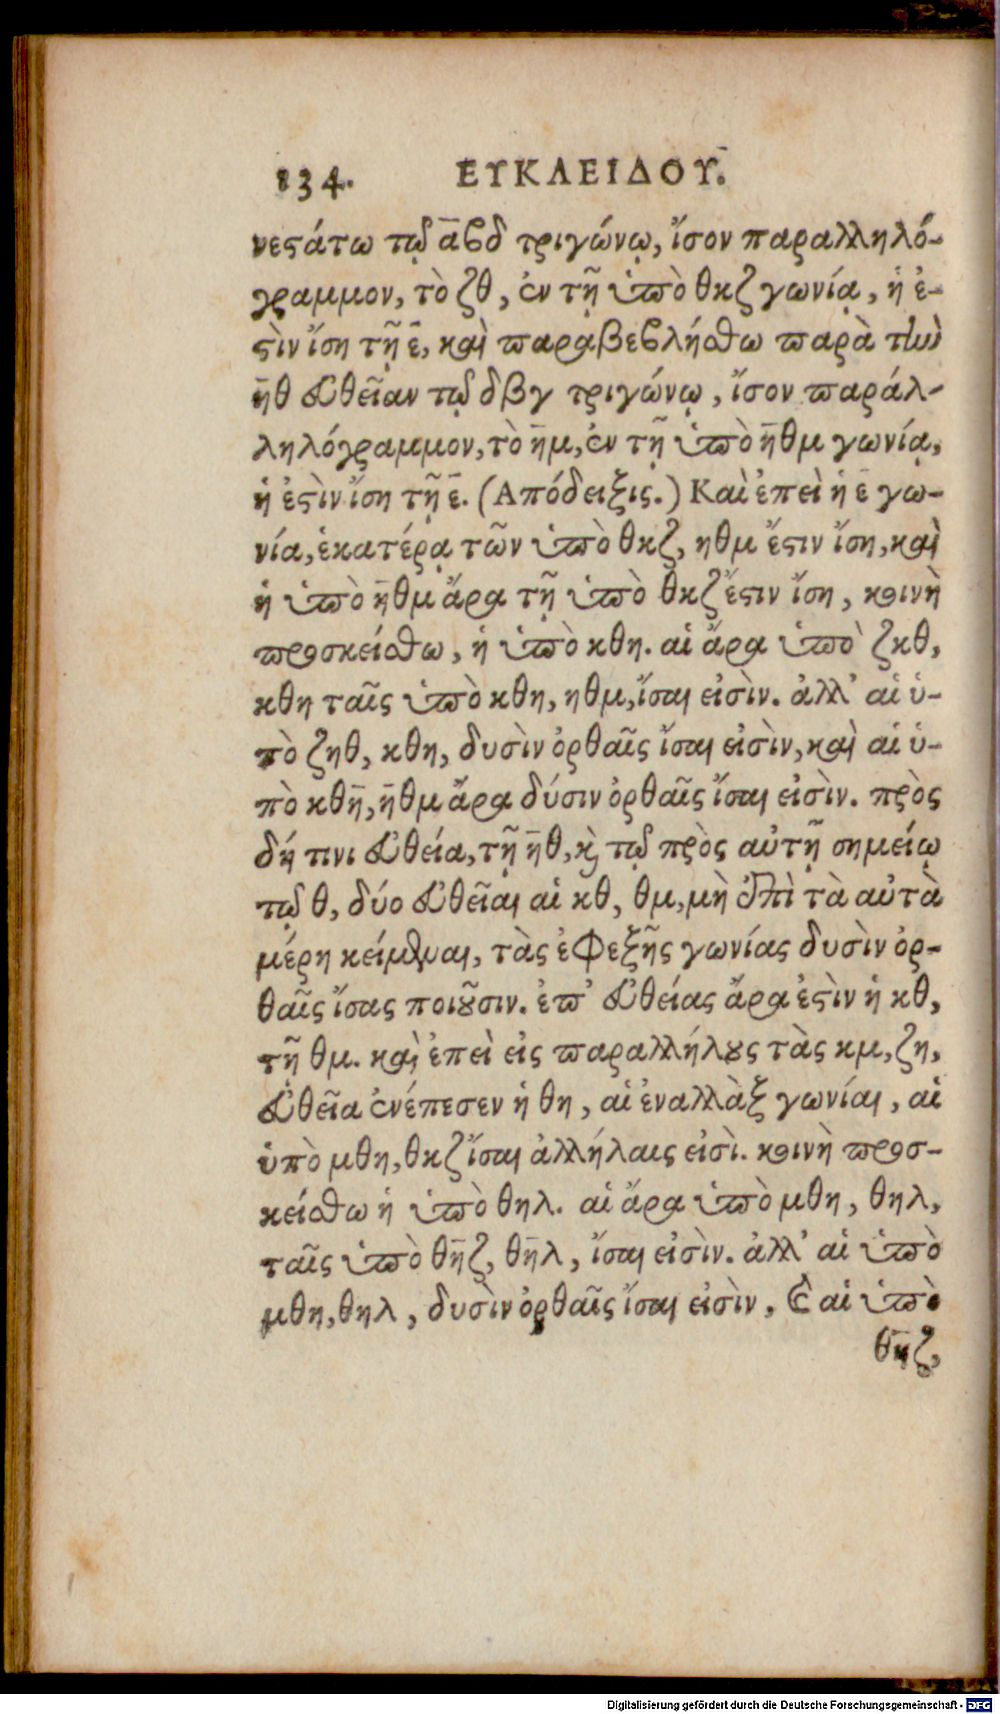 834. ΕΥΚΛΕΙΔΟΥ.
νεςάτω τῷ ᾱβδ τριγώνῳ, ἴσον παραλληλό-
γραμμον, τὸ ζθ, ἐν τῇ ὑπὸ θκζ γωνίᾳ, ἥ ἐ-
ςὶν ἴση τῇ ε̄, καὶ παραβεβλήσθω παρὰ τὴν
η̄θ εὐθεῖαν τῷ δβγ τριγώνῳ, ἴσον παράλ-
ληλόγραμμον, τὸ η̄μ, ἐν τῇ ὑπὸ η̄θμ γωνίᾳ,
ἥ ἐςὶν ἴση τῇ ε̄. (Απόδειξις.) Καὶ ἐπεὶ ἡ ε̄ γω-
νία, ἑκατέρᾳ τῶν ὑπὸ θκζ, ηθμ ἔςιν ἴση, καὶ
ἡ ὑπὸ η̄θμ ἄρα τῇ ὑπὸ θκζ ἔςιν ἴση, κοινὴ
προσκείσθω, ἡ ὑπὸ κθη. αἱ ἄρα ὑπὸ ζκθ,
κθη ταῖς ὑπὸ κθη, ηθμ, ἴσαι εἰσὶν. ἀλλ' αἱ ὑ-
πὸ ζηθ, κθη, δυσὶν ὀρθαῖς ἴσαι εἰσὶν, καὶ αἱ ὑ-
πὸ κθη̄, η̄θμ ἄρα δύσιν ὀρθαῖς ἴσαι εἰσὶν. πρὸς
δή τινι εὐθεία, τῇ η̄θ, καὶ τῷ πρὸς αὐτῇ σημείῳ
τῷ θ, δύο εὐθεῖαι αἱ κθ, θμ, μὴ ἐπὶ τὰ αὐτὰ
μέρη κείμεναι, τὰς ἐφεξῆς γωνίας δυσὶν ὀρ-
θαῖς ἴσας ποιοῦσιν. ἐπ' εὐθείας ἄρα ἐςὶν ἡ κθ,
τῇ θμ. καὶ ἐπεὶ εἰς παραλλήλους τὰς κμ, ζη,
εὐθεῖα ἐνέπεσεν ἡ θη, αἱ ἐναλλὰξ γωνίαι, αἱ
ὑπὸ μθη, θκζ ἴσαι ἀλλήλαις εἰσὶ. κοινὴ προσ-
κείσθω ἡ ὑπὸ θηλ. αἱ ἄρα ὑπὸ μθη, θηλ,
ταῖς ὑπὸ θη̄ζ, θη̄λ, ἴσαι εἰσὶν. ἀλλ' αἱ ὑπὸ
μθη, θηλ, δυσὶν ὀρθαῖς ἴσαι εἰσὶν, καὶ αἱ ὑπὸ
θη̄ζ,
Digitalisierung gefördert durch die Deutsche Forschungsgemeinschaft - DFG